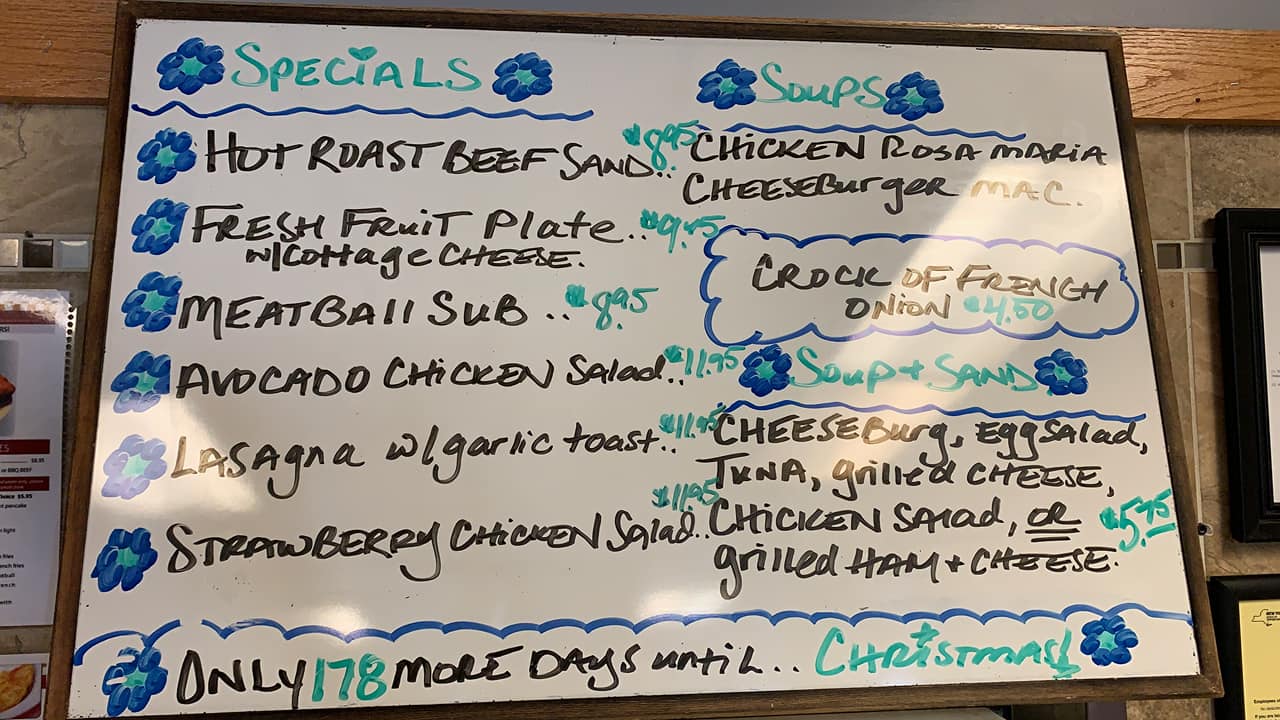 SPECIALS
HOT ROAST BEEF SAND.. $8.95
FRESH FRUIT PLATE.. $9.45
W/COTTAGE CHEESE.
MEATBALL SUB .. $8.95
AVOCADO CHICKEN SALAD.. $11.95
LASAGNA W/GARLIC TOAST.. $11.95
STRAWBERRY CHICKEN SALAD.. $11.95
SOUPS
CHICKEN ROSA MARIA
CHEESEBURGER MAC.
CROCK OF FRENCH
ONION $4.50
SOUP + SAND
CHEESEBURG, EGG SALAD,
TUNA, GRILLED CHEESE,
CHICKEN SALAD, OR
GRILLED HAM + CHEESE. $5.75
ONLY 178 MORE DAYS UNTIL.. CHRISTMAS!